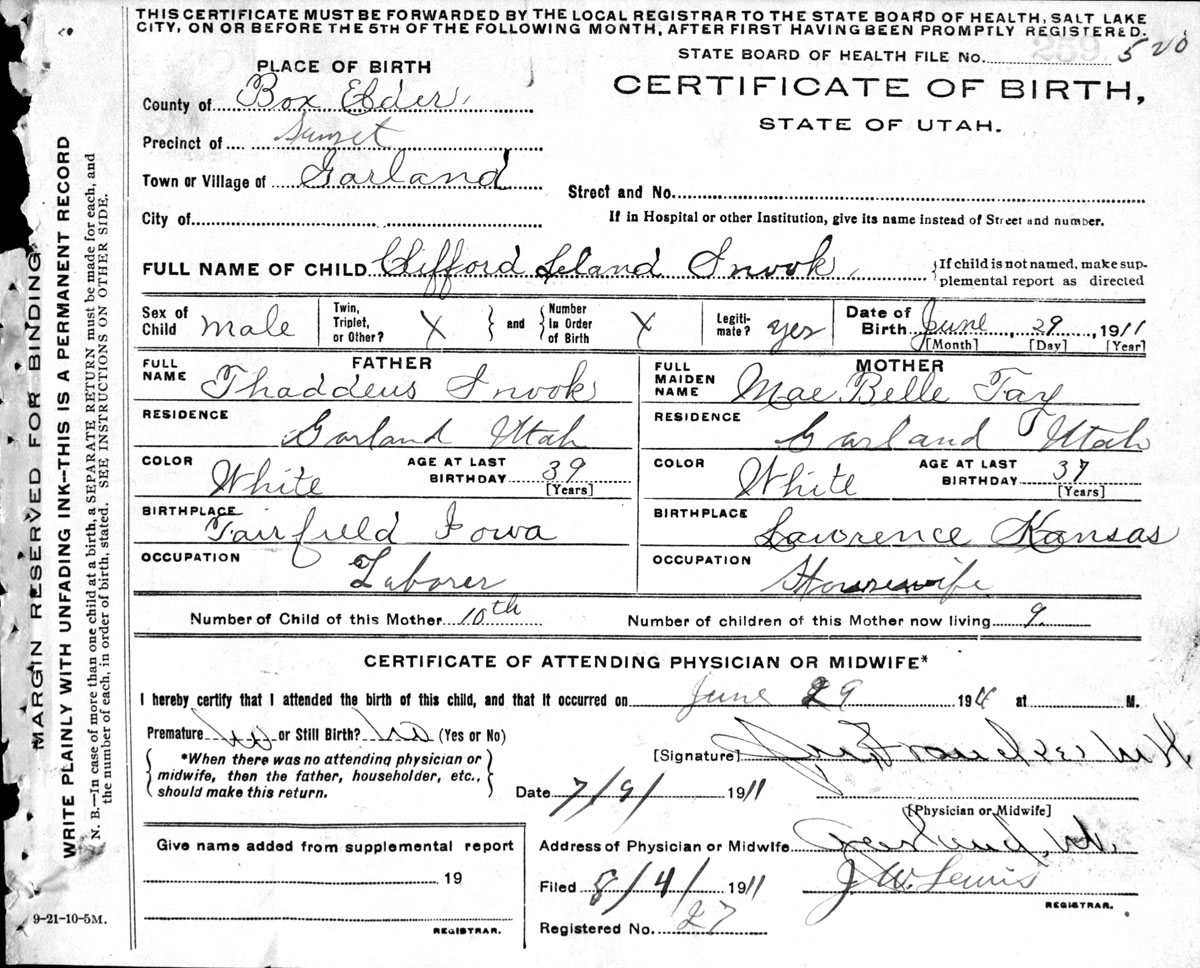 THIS CERTIFICATE MUST BE FORWARDED BY THE LOCAL REGISTRAR TO THE STATE BOARD OF HEALTH, SALT LAKE
CITY, ON OR BEFORE THE 5TH OF THE FOLLOWING MONTH, AFTER FIRST HAVING BEEN PROMPTLY REGISTERED.
STATE BOARD OF HEALTH FILE No. 259 520
PLACE OF BIRTH
CERTIFICATE OF BIRTH,
STATE OF UTAH.
County of Box Elder
Precinct of Sunset
Town or Village of Garland
Street and No.
City of
If in Hospital or other Institution, give its name instead of Street and number.
FULL NAME OF CHILD Clifford Leland Snook
{If child is not named, make sup-
plemental report as directed
Sex of Child male
Twin, Triplet, or Other? X } and { Number In Order of Birth X
Legiti-mate? yes
Date of Birth June, 29, 1911
[Month] [Day] [Year]
FATHER
FULL NAME Thaddeus Snook
RESIDENCE Garland Utah
COLOR White
AGE AT LAST BIRTHDAY 39 [Years]
BIRTHPLACE Fairfield Iowa
OCCUPATION Laborer
MOTHER
FULL MAIDEN NAME Mae Belle Fay
RESIDENCE Garland Utah
COLOR White
AGE AT LAST BIRTHDAY 37 [Years]
BIRTHPLACE Lawrence Kansas
OCCUPATION Housewife
Number of Child of this Mother 10th
Number of children of this Mother now living 9.
CERTIFICATE OF ATTENDING PHYSICIAN OR MIDWIFE*
I hereby certify that I attended the birth of this child, and that it occurred on June 29 1911 at M.
Premature no or Still Birth? no (Yes or No)
{ *When there was no attending physician or
midwife, then the father, householder, etc.,
should make this return. }
[Signature]
Date 7/9/ 1911
[Physician or Midwife]
Give name added from supplemental report
19
REGISTRAR.
Address of Physician or Midwife Garland, Ut.
Filed 8/4/ 1911
J. W. Lewis
REGISTRAR.
Registered No. 27
9-21-10-5M.
MARGIN RESERVED FOR BINDING
WRITE PLAINLY WITH UNFADING INK—THIS IS A PERMANENT RECORD
N. B.—In case of more than one child at a birth, a SEPARATE RETURN must be made for each, and
the number of each, in order of birth, stated. SEE INSTRUCTIONS ON OTHER SIDE.